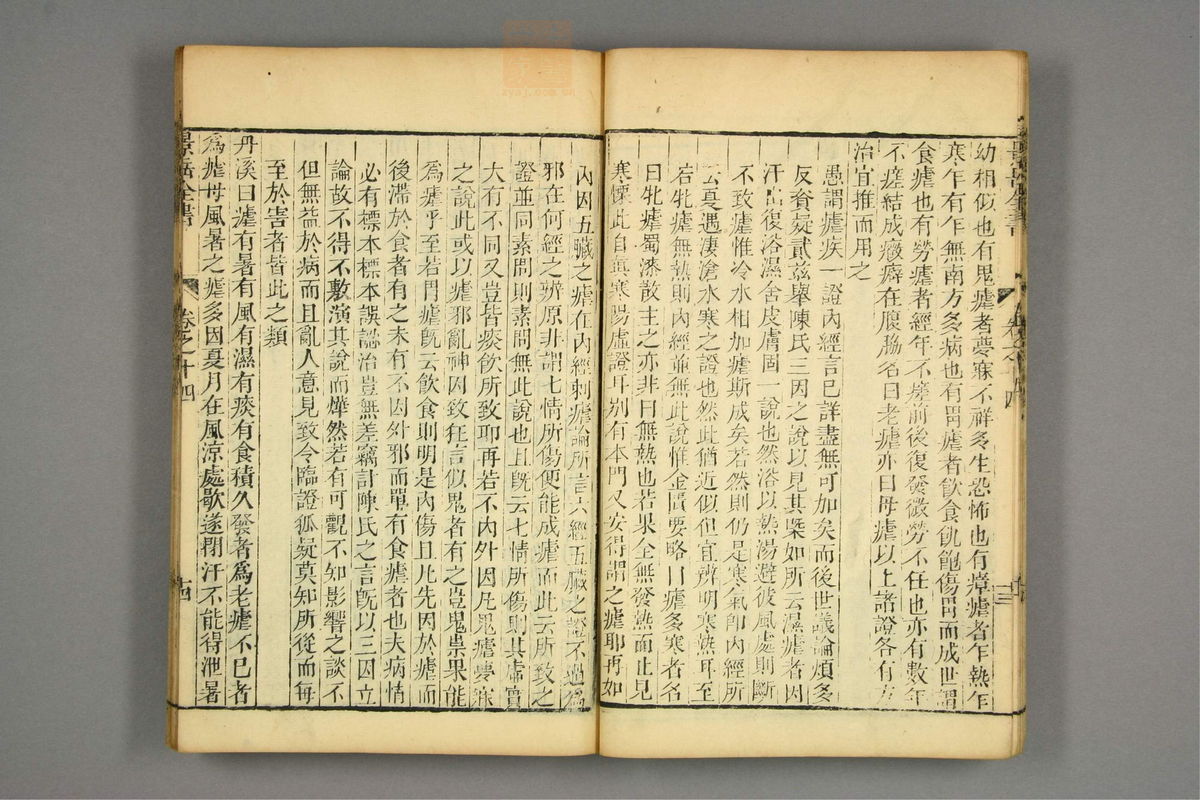 景岳全書 卷之十四 十三
幼相似也有鬼瘧者夢寐不祥多生恐怖也有瘴瘧者乍熱乍
寒乍有乍無南方多病也有胃瘧者飲食飢飽傷胃而成世謂
食瘧也有勞瘧者經年不瘥前後復發微勞不任也亦有數年
不瘥結成癥癖在腹脇名曰老瘧亦曰母瘧以上諸證各有方
治宜推而用之
愚謂瘧疾一證內經言已詳盡無可加矣而後世議論煩多
反資疑貳茲舉陳氏三因之說以見其槩如所云濕瘧者因
汗出復浴濕舍皮膚固一說也然浴以熱湯避彼風處則斷
不致瘧惟冷水相加瘧斯成矣若然則仍是寒氣卽內經所
云夏遇淒滄水寒之證也然此猶近似但宜辨明寒熱耳至
若牝瘧無熱則內經並無此說惟金匱要略曰瘧多寒者名
曰牝瘧蜀漆散主之亦非曰無熱也若果全無發熱而止見
寒慄此自眞寒陽虛證耳别有本門又安得謂之瘧耶再如
內因五臟之瘧在內經刺瘧論所言六經五臟之證不過為
邪在何經之辨原非謂七情所傷便能成瘧而此云所致之
證並同素問則素問無此說也且旣云七情所傷則其虛實
大有不同又豈皆痰飲所致耶再若不內外因凡鬼瘧夢寐
之說此或以瘧邪亂神因致狂言似鬼者有之豈鬼祟果能
爲瘧乎至若胃瘧旣云飲食則明是內傷且凡先因於瘧而
後滯於食者有之未有不因外邪而單有食瘧者也夫病情
必有標本標本誤認治豈無差竊計陳氏之言旣以三因立
論故不得不敷演其說而燁然若有可觀不知影響之談不
但無益於病而且亂人意見致令臨證狐疑莫知所從而每
至於害者皆此之類
丹溪曰瘧有暑有風有濕有痰有食積久發者爲老瘧不已者
爲瘧母風暑之瘧多因夏月在風涼處歇遂閉汗不能得泄暑
景岳全書 卷之十四 十四